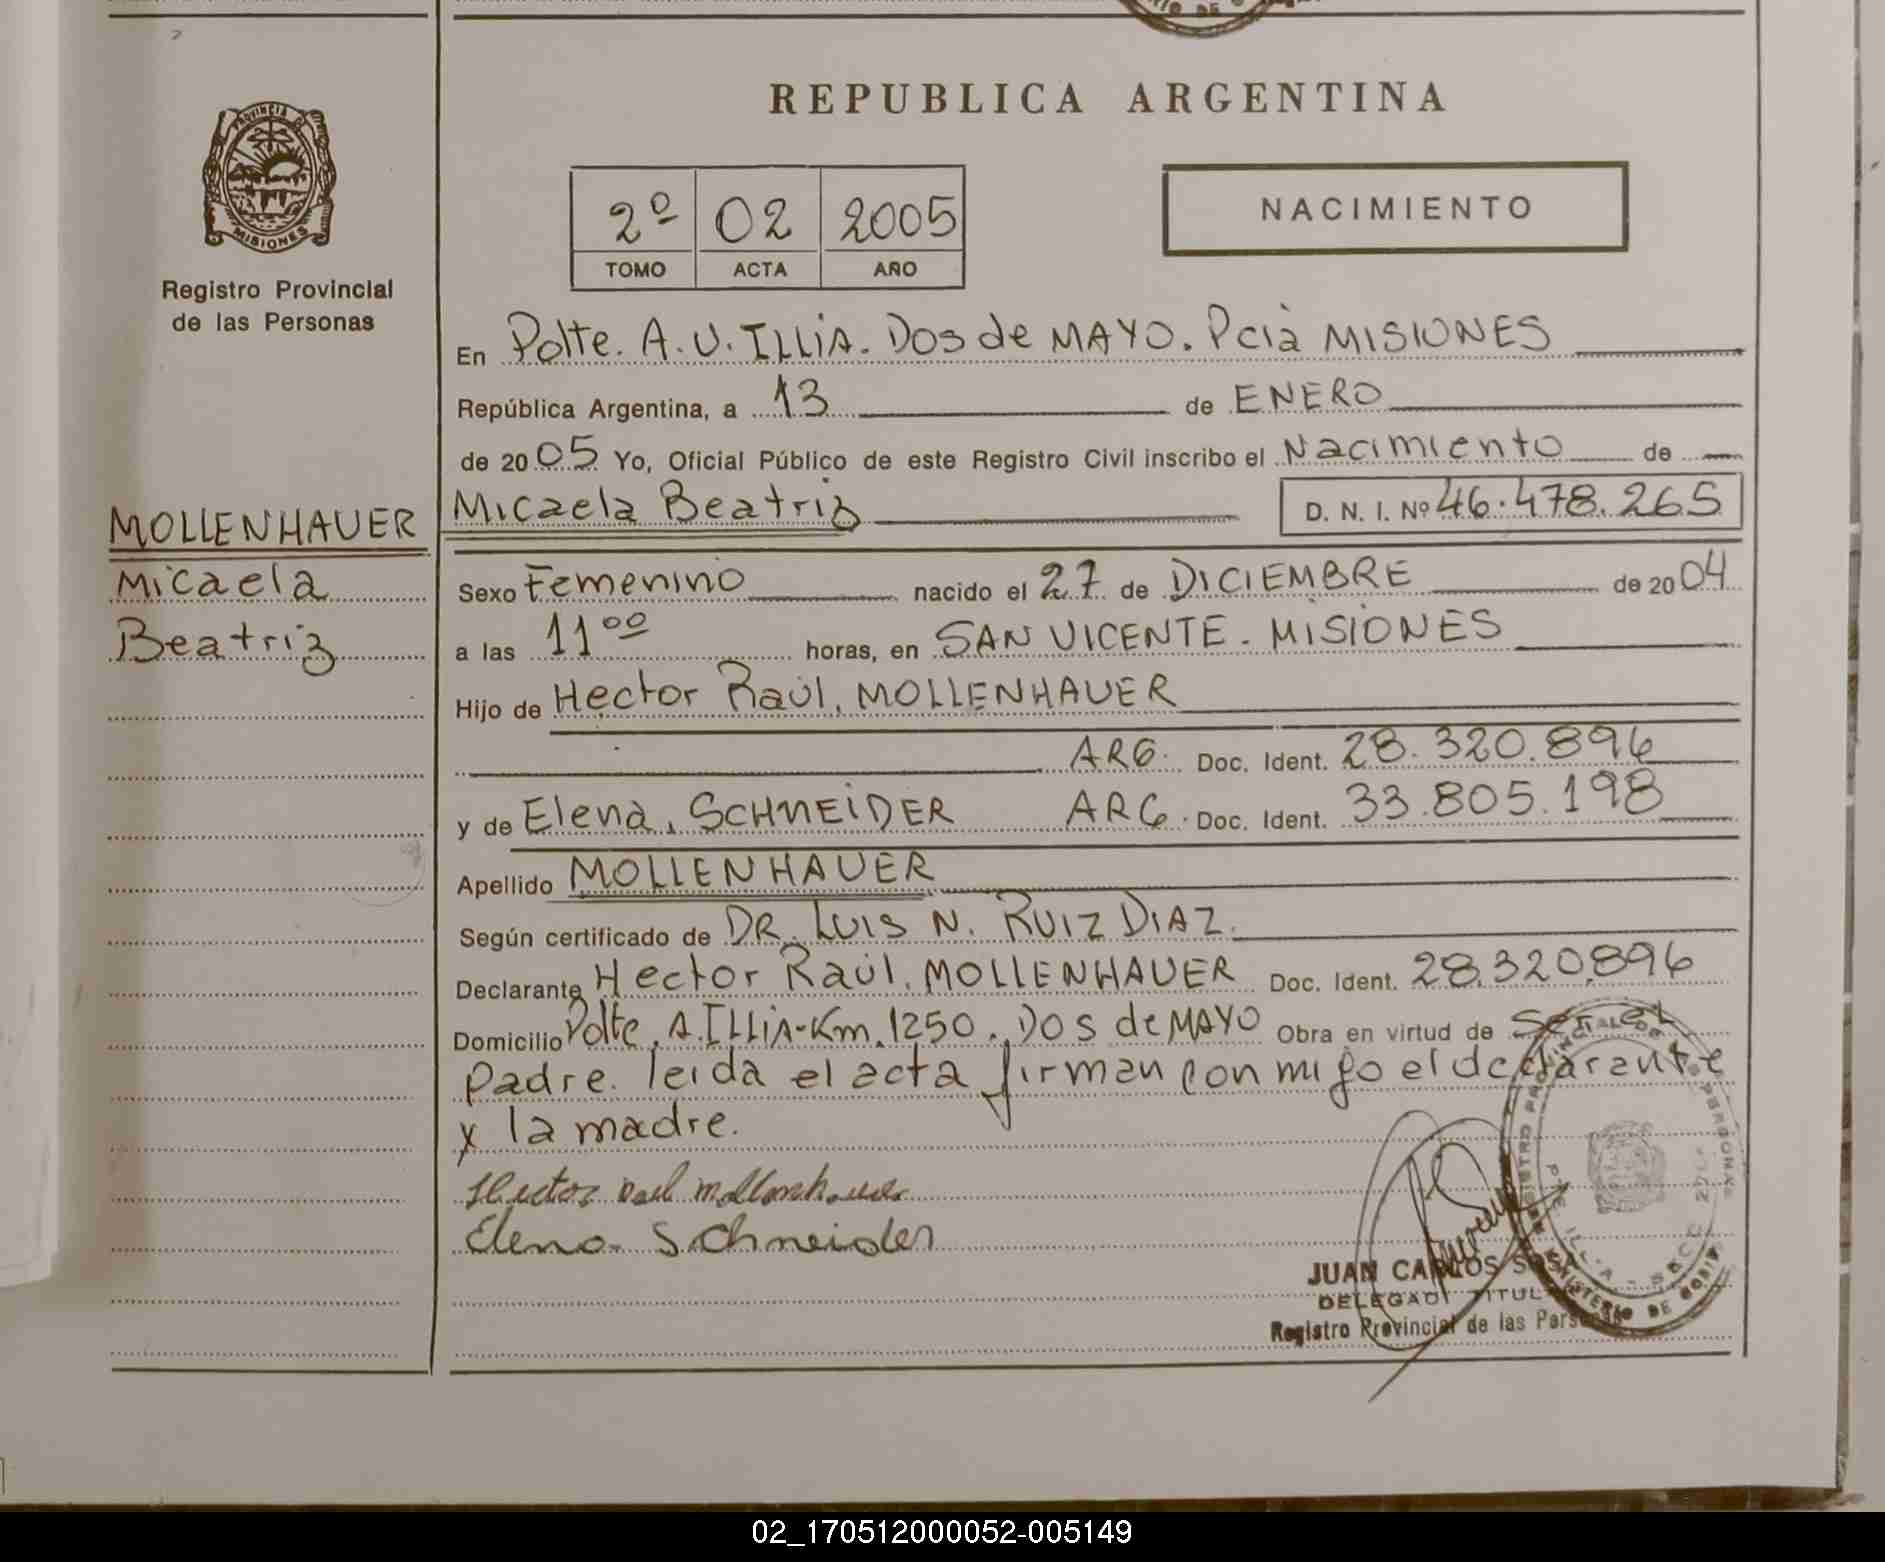 REPUBLICA ARGENTINA
PROVINCIA DE
MISIONES
Registro Provincial
de las Personas
2º 02 2005
TOMO ACTA AÑO
NACIMIENTO
En Pdte. A. U. ILLIA. Dos de MAYO. Pcia MISIONES
República Argentina, a 13 de ENERO
de 2005 Yo, Oficial Público de este Registro Civil inscribo el Nacimiento de
Micaela Beatriz D. N. I. Nº 46.478.265
MOLLENHAUER
Micaela
Beatriz
Sexo Femenino nacido el 27 de DICIEMBRE de 2004
a las 11⁰⁰ horas, en SAN VICENTE - MISIONES
Hijo de Hector Raúl, MOLLENHAUER
ARG. Doc. Ident. 28.320.896
y de Elena, SCHNEIDER ARG. Doc. Ident. 33.805.198
Apellido MOLLENHAUER
Según certificado de DR. LUIS N. RUIZ DIAZ.
Declarante Hector Raúl, MOLLENHAUER Doc. Ident. 28.320.896
Domicilio Pdte. A. ILLIA - Km. 1250. DOS de MAYO Obra en virtud de Ser el
Padre. leida el acta firman con migo el declarante
y la madre.
Hector Raul mollenhauer
Elena Schneider
JUAN CARLOS SOSA
DELEGADO TITULAR
Registro Provincial de las Personas
02_170512000052-005149